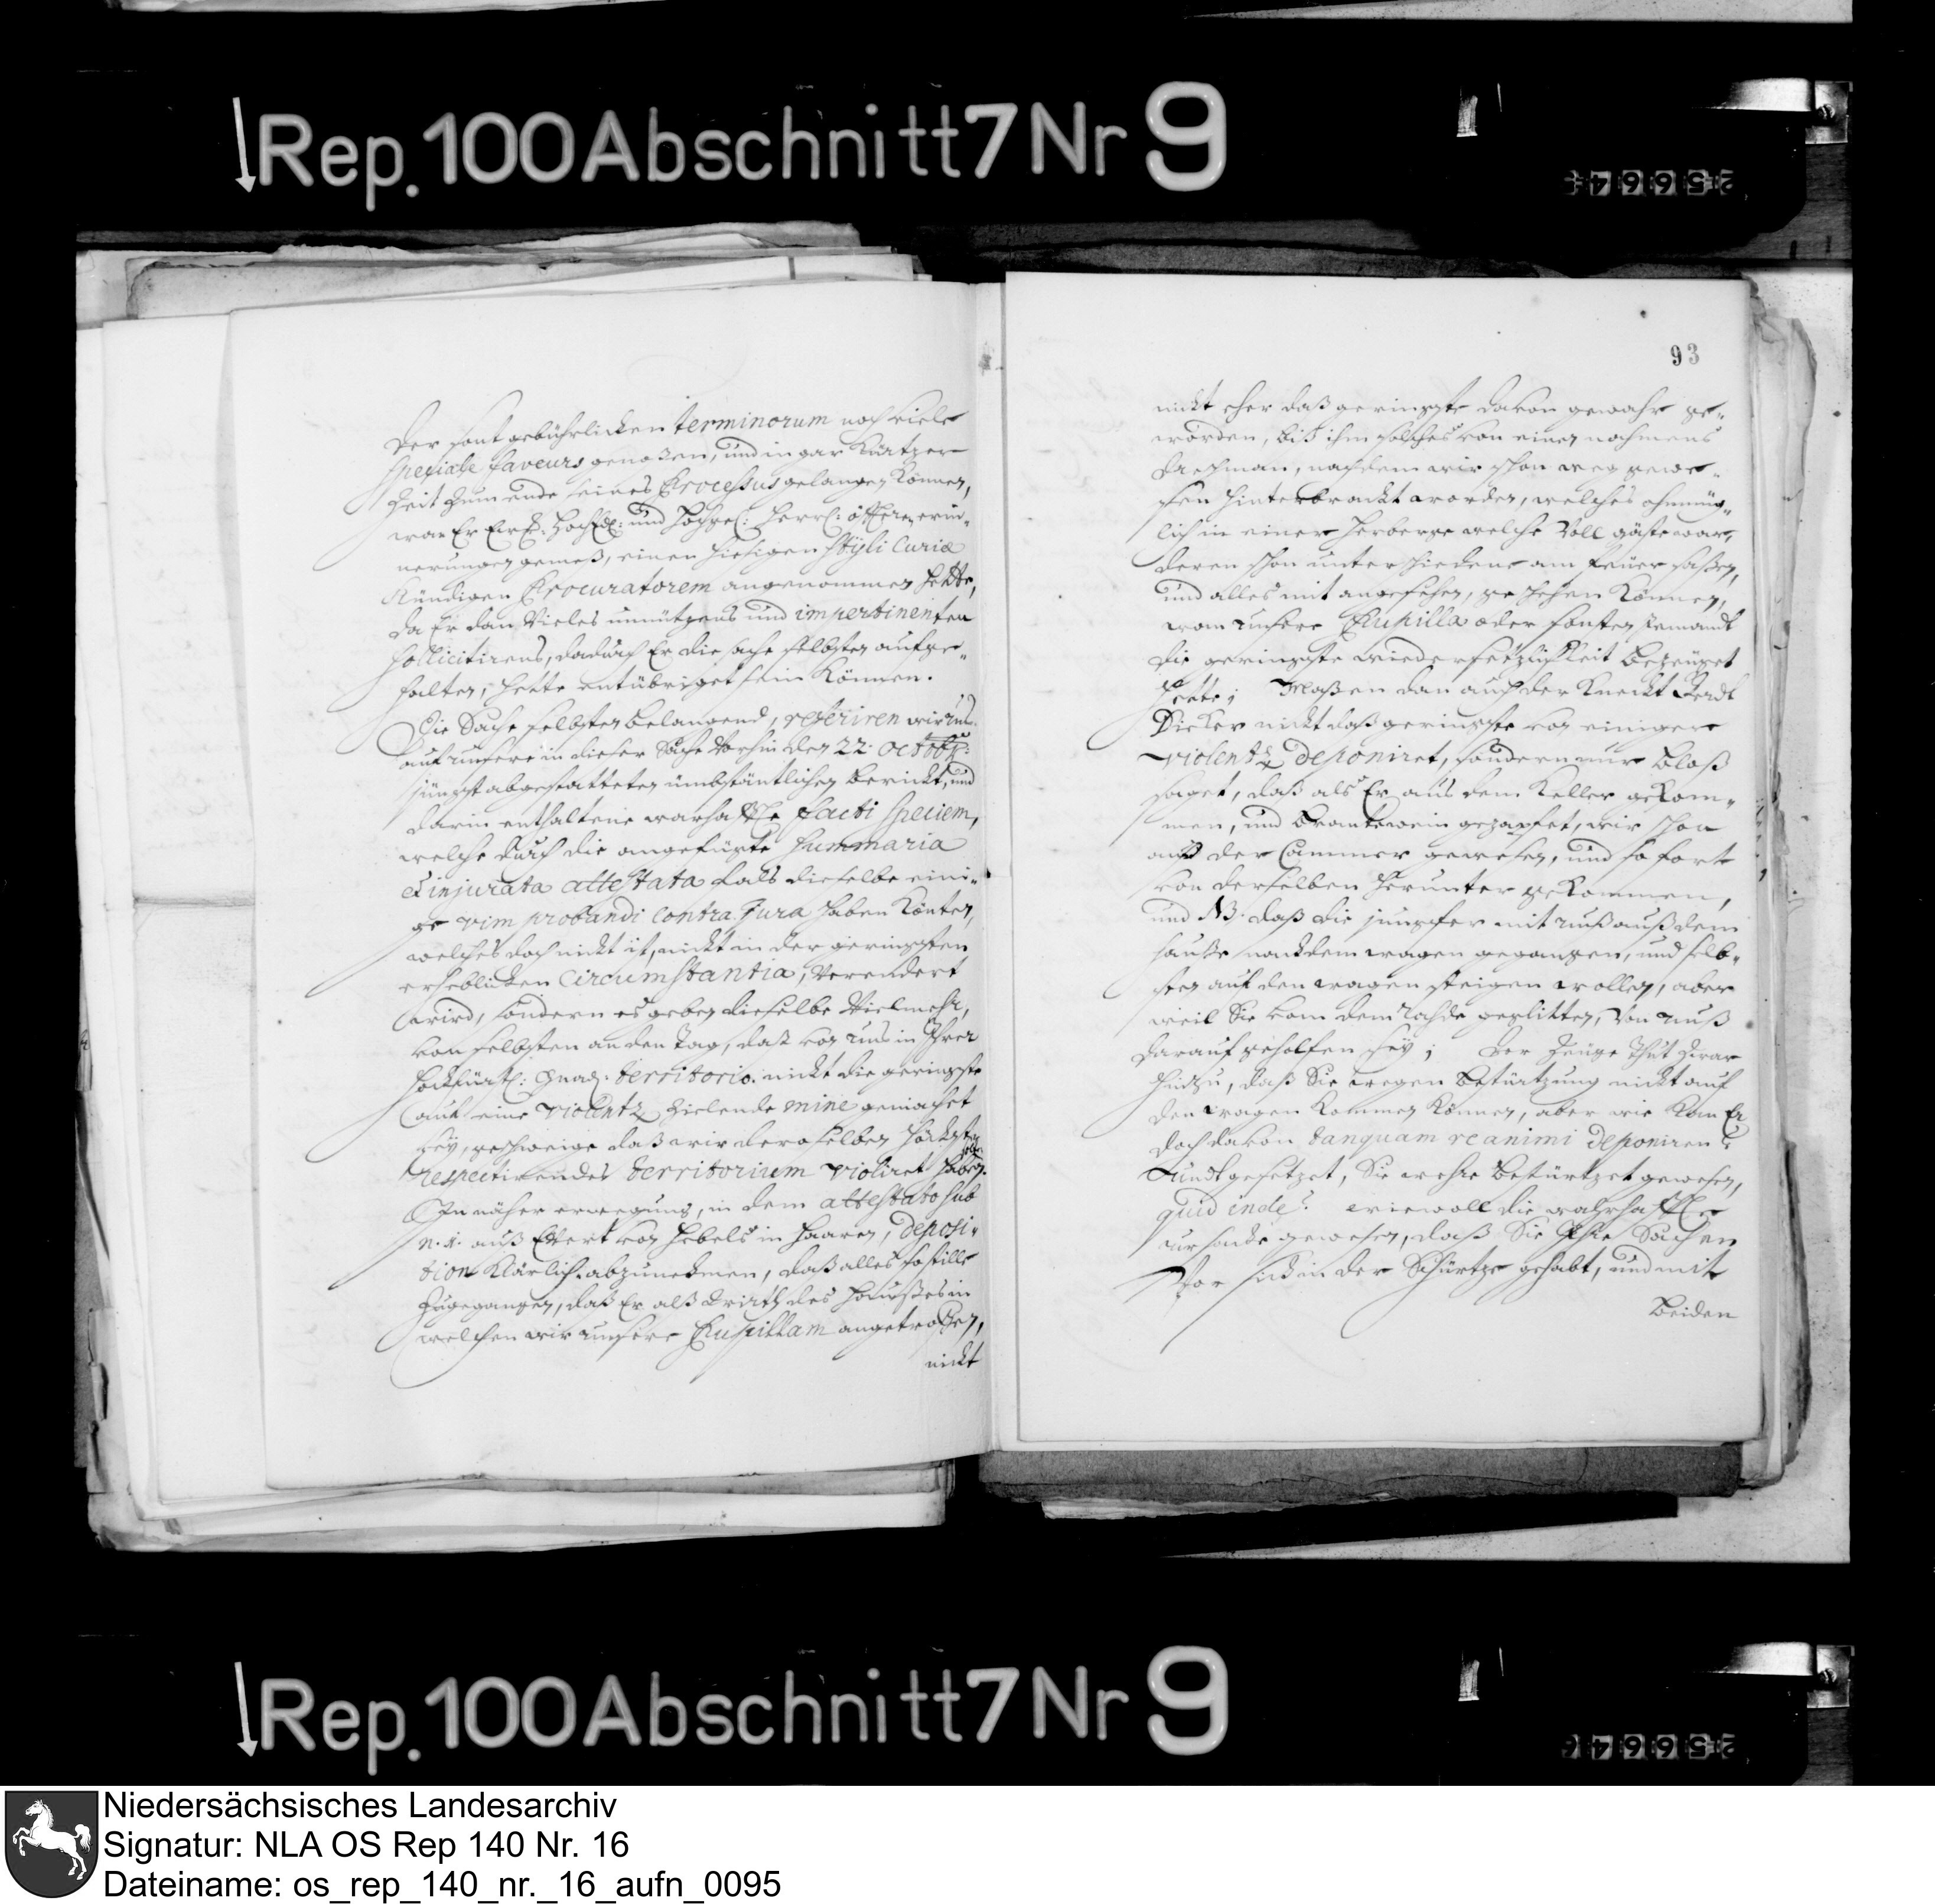 Rep. 100 Abschnitt 7 Nr 9
25664
der sonst gebührlichen terminorum noch viele
speciale faveurs genoßen, und in gar kürtzer
Zeit zum ende seines Processus gelangen können,
wan Er und erin„
nerungen gemeß, einen hiesigen Styli Curiæ
kündigen Procuratorem angenommen hette,
da Er dan vieles unnützens und impertinenten
sollicitirens, dadurch Er die sache selbsten aufge„
halten, hette entübriget sein können.
Die Sache selbsten belangend, referiren wir uns
auf unsere in dieser Sache vorhin den 22. Octobr:
jüngst abgestatteten ümbständtlichen Bericht, und
darin enthaltene warhaffte facti speciem,
welche durch die angefügte Summaria
et injurata attestata fals dieselbe eini„
ge vim probandi contra Jura haben könten,
welches doch nicht ist, nicht in der geringsten
erheblichen Circumstantia, verendert
wird, sondern es geben dieselbe vielmehr,
von selbsten an den Tag, daß von uns in Ihrer
Hochfürstl: Gnad. territorio nicht die geringste
auf eine violentz zielende mine gemachet
sey, geschweige daß wir deroselben höchst
respectirendes territorium violiret haben.
In näher erwegung, in dem attestato sub
n. 1. auß Evert von Hebels in Haaren, deposi„
tion klärlich abzunehmen, daß alles so stille
zugegangen, daß Er alß Wirth des Haußes in
welchen wir unsere Pupillam angetroffen,
nicht
93
nicht eher daß geringste davon gewahr ge„
worden, biß ihm solches von einen nahmens
nachdem wir schon weg gewe„
sen hinterbracht worden, welches ohnmüg„
lich in einer Herberge welche voll gäste war,
deren schon unterschiedene am feuer saßen,
und alles mit angesehen, geschehen können,
wan unsere Pupilla oder sonsten jemandt
die geringste wiedersetzlichkeit bezeuget
hette; Maßen dan auch der Knecht Gerdt
Dieker nicht daß geringste von einiger
violentz deponiret, sondern nur bloß
saget, daß als Er aus dem Keller gekom„
men, und Brantewein gezapfet, wir schon
auf der Cammer gewesen, und so fort
von derselben herunter gekommen,
und NB. daß die jungfer mit unß auß dem
hauße nach dem wagen gegangen, und selb„
sten auf den wagen steigen wollen, aber
weil Sie von dem Rahde geglitten, von unß
darauf geholfen sey; der Zeuge thut zwar
hinzu, daß Sie wegen Bestürtzung nicht auf
den wagen kommen können, aber wie kan Er
doch davon tanquam re animi deponiren?
undt gesetzet, Sie wehre bestürtzet gewesen,
quid inde? wiewoll die wahrhaffte
ursache gewesen, daß Sie Ihre Sachen
vor sich in der Schürtze gehabt, und mit
beiden
Rep. 100 Abschnitt 7 Nr 9
25664
Niedersächsisches Landesarchiv
Signatur: NLA OS Rep 140 Nr. 16
Dateiname: os_rep_140_nr._16_aufn_0095